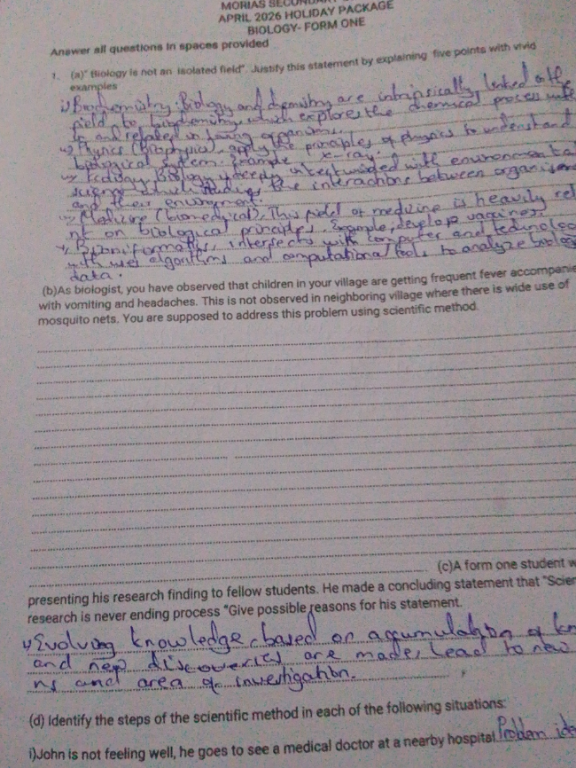 MORIAS SECONDARY
APRIL 2026 HOLIDAY PACKAGE
BIOLOGY- FORM ONE
Answer all questions in spaces provided
1. (a)" Biology is not an isolated field". Justify this statement by explaining five points with vivid
examples
i) Biochemistry: Biology and chemistry are intrinsically linked
field to biochemistry which explores the chemical process
and related in living organisms.
Physics (Biophysics), apply the principles of physics to understand
biological system. Example x-ray.
Biology deeply with environmental
science which the interactions between organism
and their environment.
Medicine (biomedical). This field of medicine is heavily
nt on biological principles. Example, develop vagines.
intersects with computer and
with algorithms and computational tools to analyze
data.
(b)As biologist, you have observed that children in your village are getting frequent fever
with vomiting and headaches. This is not observed in neighboring village where there is wide use of
mosquito nets. You are supposed to address this problem using scientific method.
(c)A form one student
presenting his research finding to fellow students. He made a concluding statement that
research is never ending process "Give possible reasons for his statement.
Evolving knowledge based on of
and new discoveries are made, lead to new
ns and area of investigation.
(d) Identify the steps of the scientific method in each of the following situations:
i)John is not feeling well, he goes to see a medical doctor at a nearby hospital Problem